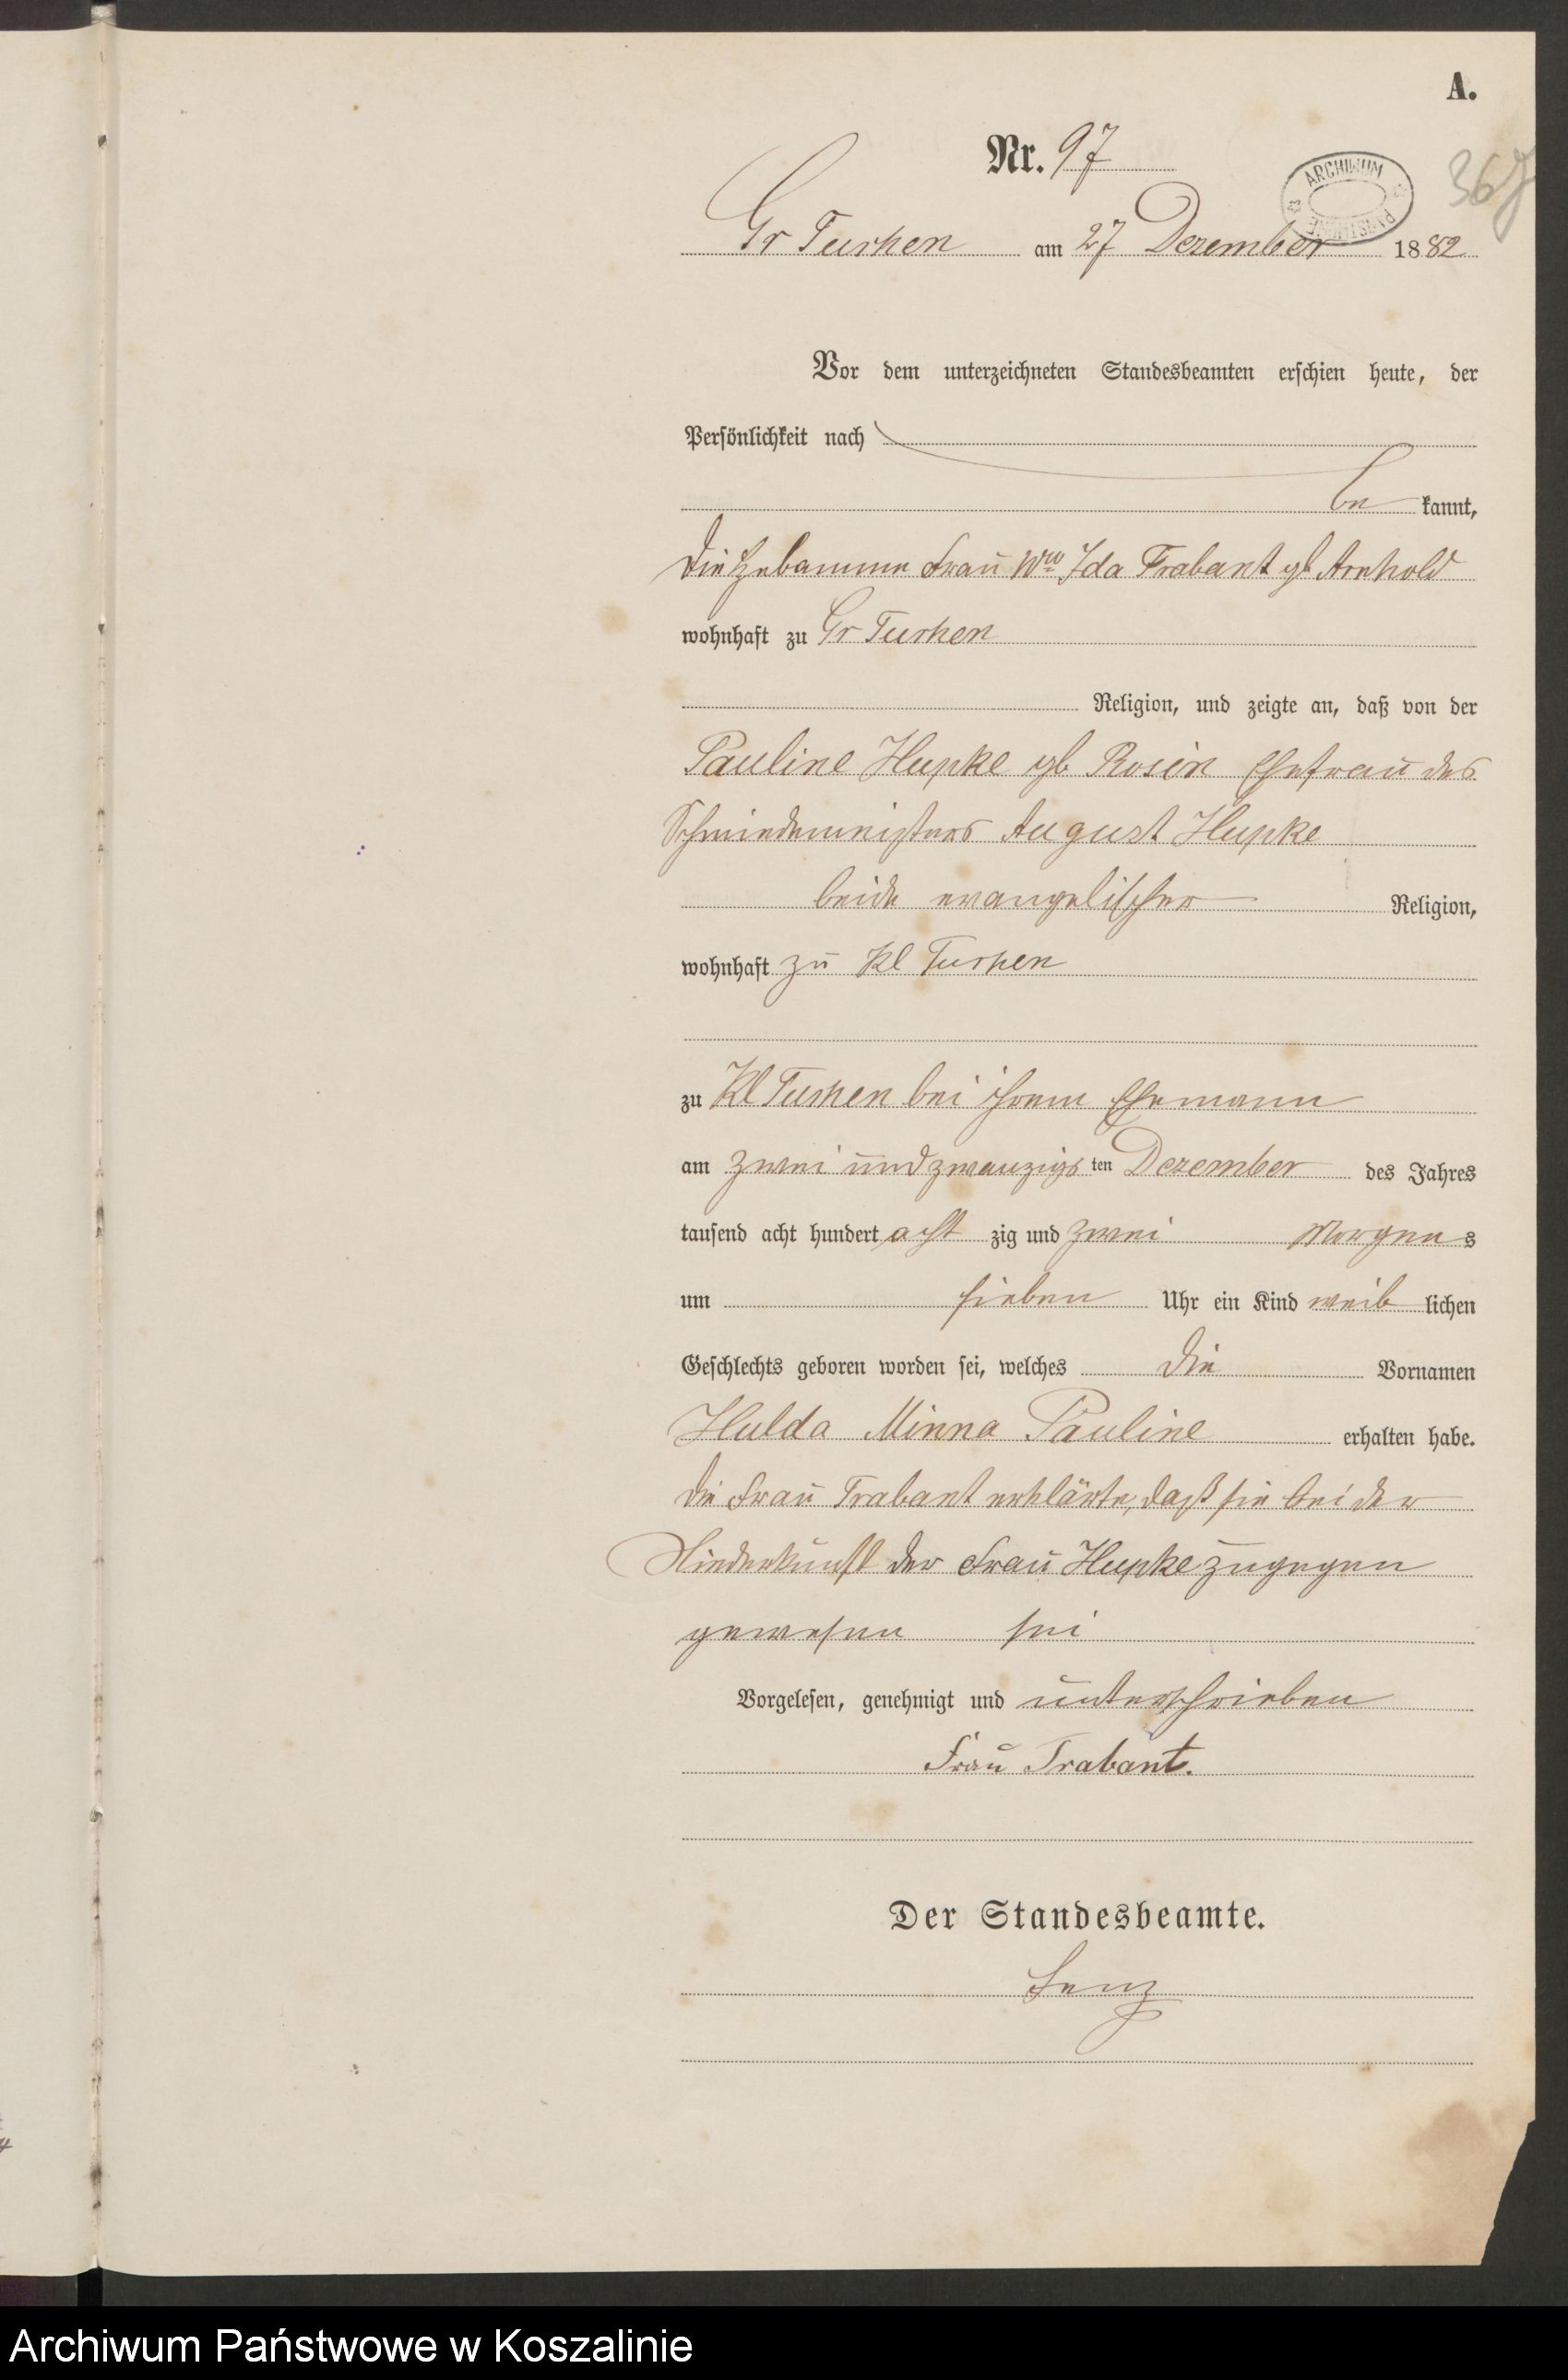 A.
Nr. 97
ARCHIWUM PAŃSTWOWE
367
Gr Tuchen am 27 Dezember 1882
Vor dem unterzeichneten Standesbeamten erschien heute, der
Persönlichkeit nach
be kannt,
die Hebamme Frau Ww Ida Trabant gb Arnhold
wohnhaft zu Gr Tuchen
Religion, und zeigte an, daß von der
Pauline Hupke gb Rosin Ehefrau des
Schmiedemeisters August Hupke
beide evangelischer Religion,
wohnhaft zu Kl Tuchen
zu Kl Tuchen bei ihrem Ehemann
am zwei und zwanzigs ten Dezember des Jahres
tausend acht hundert acht zig und zwei Morgens
um sieben Uhr ein Kind weib lichen
Geschlechts geboren worden sei, welches die Vornamen
Hulda Minna Pauline erhalten habe.
die Frau Trabant erklärte, daß sie bei der
Niederkunft der Frau Hupke zugegen
gewesen sei
Vorgelesen, genehmigt und unterschrieben
Frau Trabant.
Der Standesbeamte.
Lenz
Archiwum Państwowe w Koszalinie